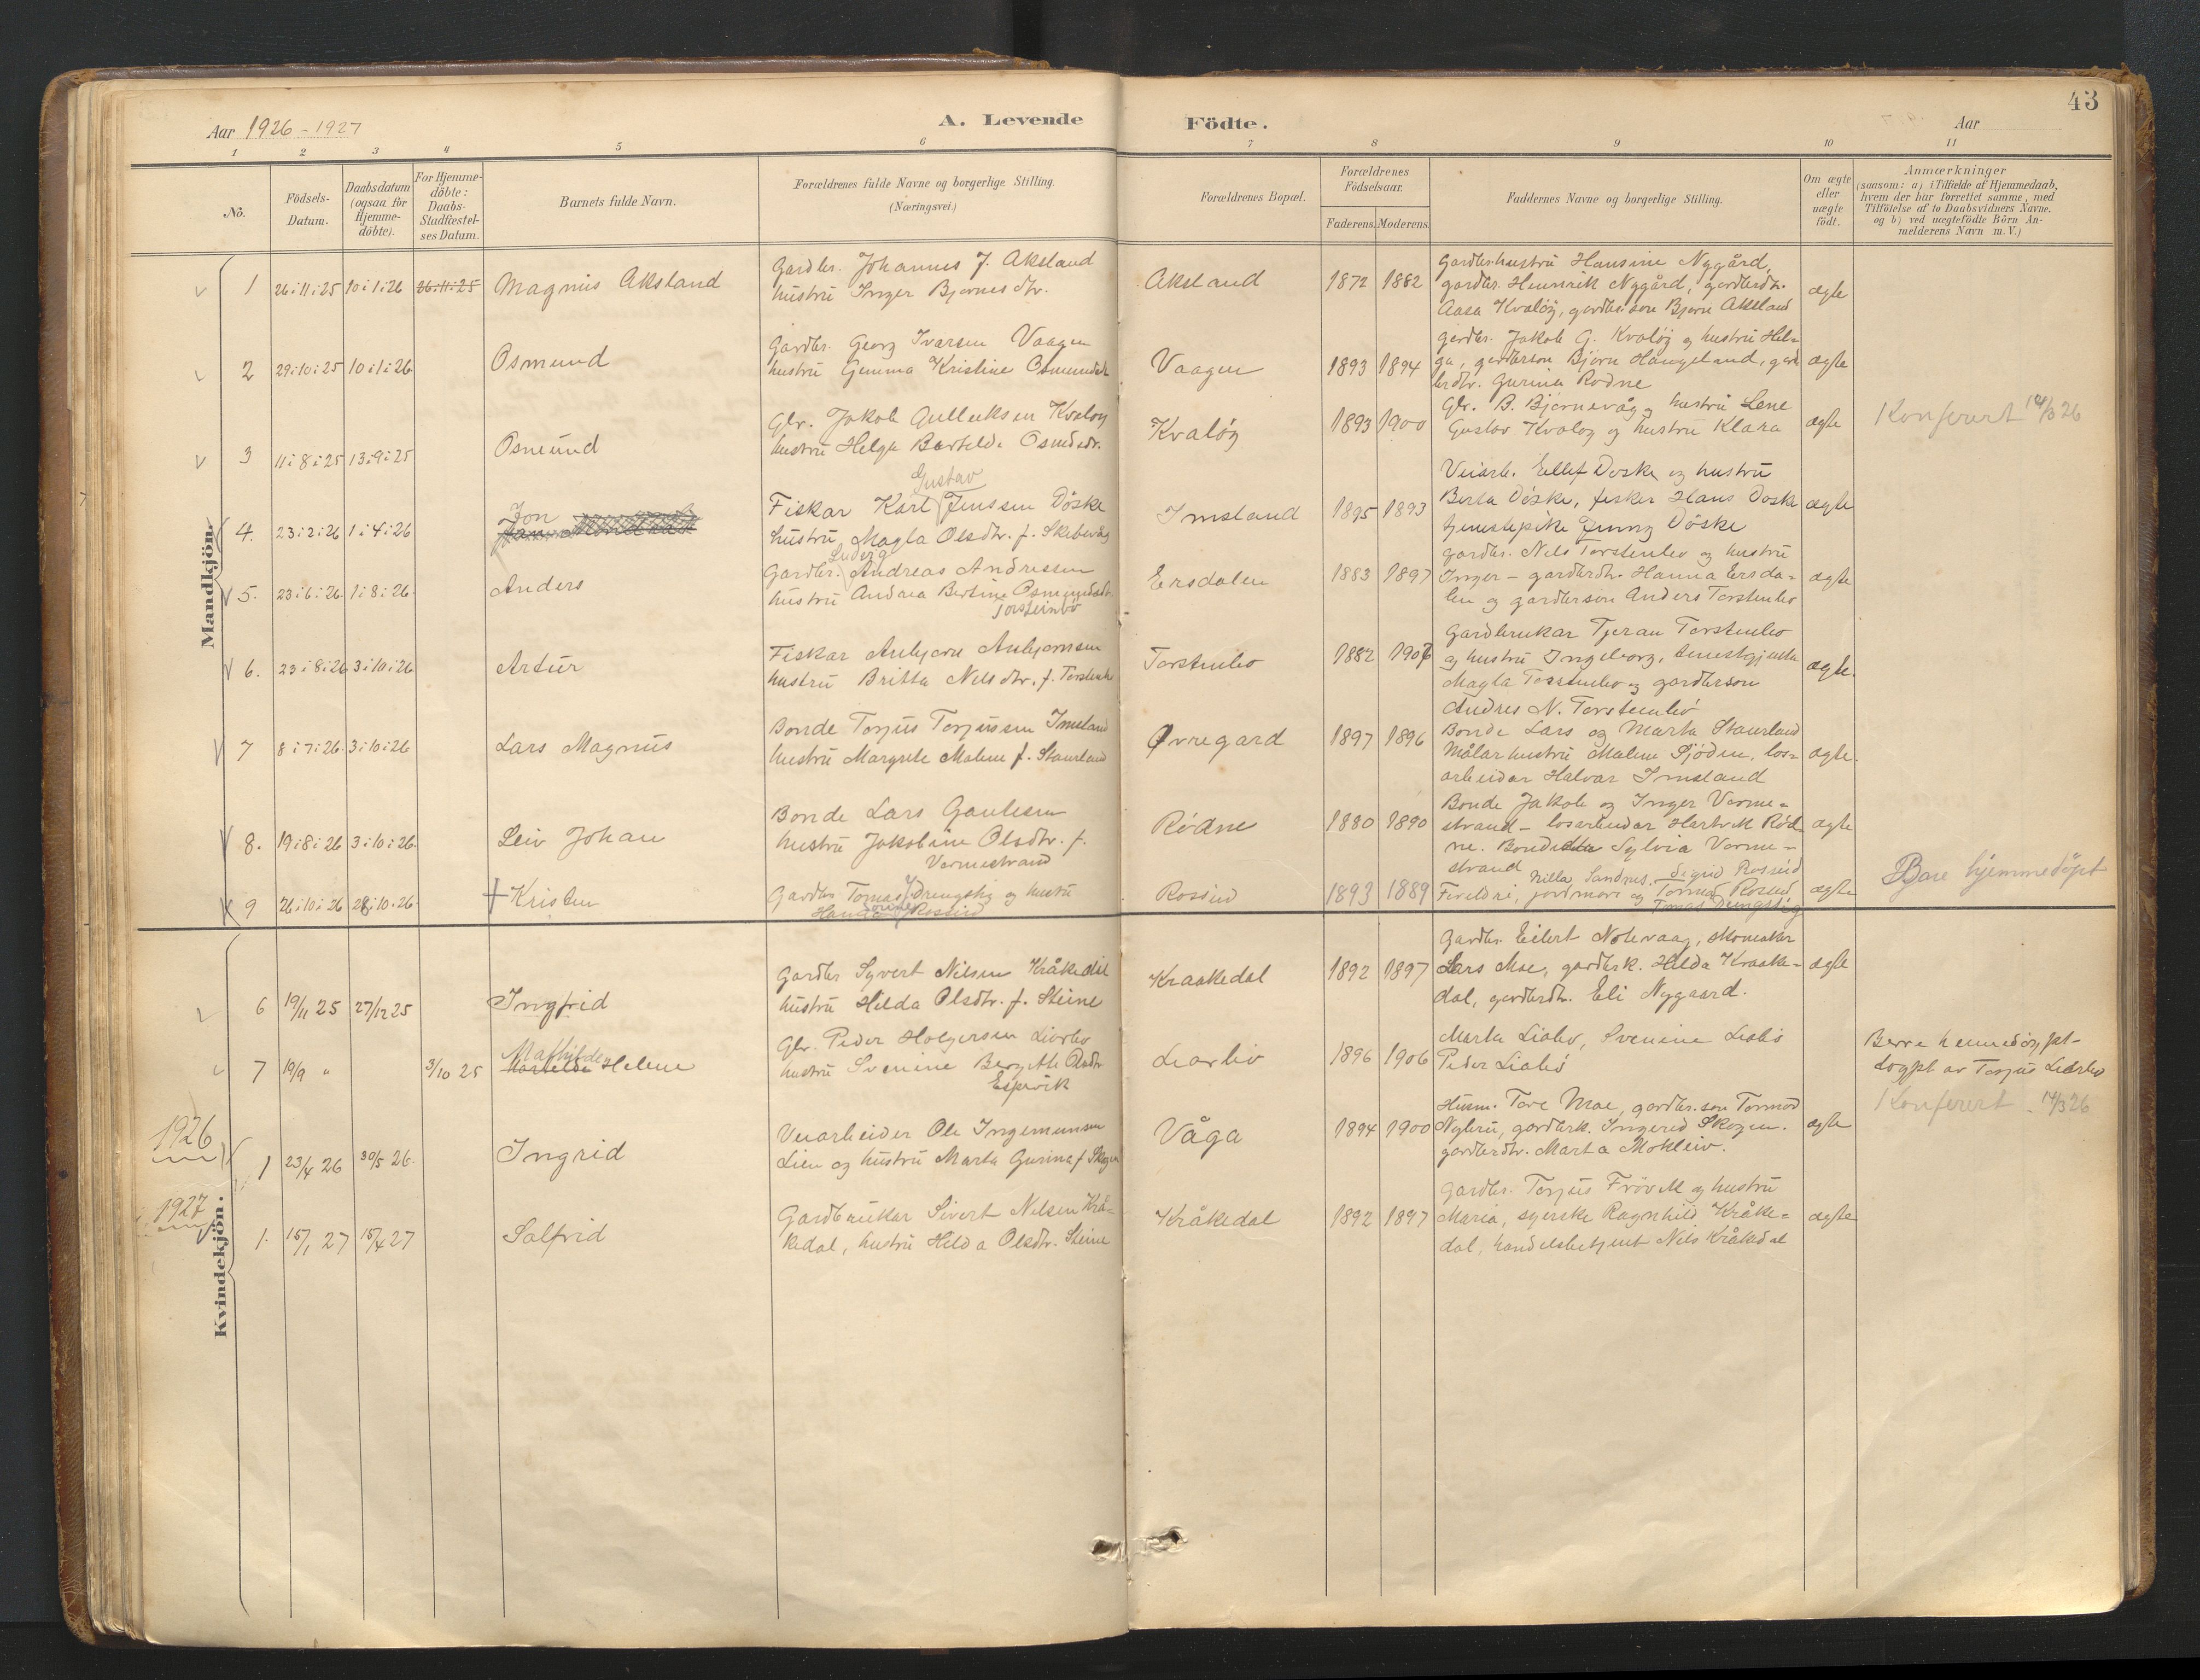 43
Aar 1926-1927
A. Levende
Födte.
Aar
1 2 3 4 5 6 7 8 9 10 11
No.
Födsels-
Datum.
Daabsdatum
(ogsaa for
Hjemme-
döbte).
For Hjemme-
döbte:
Daabs-
Stadfæstel-
ses Datum.
Barnets fulde Navn.
Forældrenes fulde Navne og borgerlige Stilling.
(Næringsvei.)
Forældrenes Bopæl.
Forældrenes
Födselsaar.
Faderens. Moderens.
Faddernes Navne og borgerlige Stilling.
Om ægte
eller
uægte
födt.
Anmærkninger
(saasom: a) i Tilfælde af Hjemmedaab,
hvem der har forrettet samme, med
Tilföielse af to Daabsvidners Navne,
og b) ved uægtefödte Börn An-
melderens Navn m. V.)
Mandkjön.
1 26:11:25 10:1:26 26:11:25 Magnus Aksland
Gardbr. Johannes J. Aksland
hustru Inger Bjornesdtr.
Aksland 1872 1882
Gardbr.hustru Hansine Nygård,
gardbr. Henrik Nygård, gardbrdtr.
Aasa Kvaløy, gardbr.son Bjørn Aksland
ægte
2 29:10:25 10:1:26 Osmund
Gardbr. Georg Iversen Vaagen
hustru Gemma Kristine Osmundsdt
Vaagen 1893 1894
gardbr. Jakob G. Kvaløy og hustru Hel-
ga, gardbrson Bjørn Haugeland, gard
brdtr. Gurina Rødne
ægte
3 11:8:25 13:9:25 Osmund
Gbr. Jakob Gulleiksen Kvaløy
hustru Helga Bertelda Osmdsdr.
Kvaløy 1893 1900
Gbr. B. Bjørnevåg, hustru Lene
Gustav Kvaløy og hustru Klara
ægte
Konferert 14/3 26
4. 23:2:26 1:4:26 Jon
Gustav
Fiskar Karl Jenssen Döske
hustru Magla Olsdtr. f. Skebevåg
Imsland 1895 1893
Veiarb. Ellef Doske og hustru
Berta Döske, fisker Hans Doske
tjenestepike Jenny Döske
ægte
5. 23:6:26 1:8:26 Anders
Ludvig
Gardbr. Andreas Andressen
hustru Andrea Bertine Osmundsdt.
Torsteinbö
Ersdalen 1883 1897
gardbr. Nils Torstenbö og hustru
Inger - gardbrdtr. Hanna Ersda-
len og gardbrson Anders Torstenbö
ægte
6. 23:8:26 3:10:26 Artur
Fiskar Anbjørn Anbjørnsen
hustru Britta Nelsdtr. f. Torstenbö
Torstenbö 1882 1907
Gardbrukar Tjeran Torstenbö
og hustru Ingeborg,
Magla Torstenbö og gardbrson
Andres N. Torstenbö
ægte.
7 8:7:26 3:10:26 Lars Magnus
Bonde Torjus Torjussen Imsland
hustru Margrete Malene f. Staurland
Øvregard 1897 1896
Bonde Lars og Marta Staurland
målar hustru Malene Sjödin, los=
arbeidar Halvar Imsland
ægte.
8. 19:8:26 3:10:26 Leiv Johan
Bonde Lars Gautesen
hustru Jakobine Olsdtr. f.
Vormestrand
Rödne 1880 1890
Bonde Jakob og Inger Vorme-
strand - losarbeidar Hartvik Röd-
ne. Sylvia Vorme-
strand
ægte
9 26:10:26 28:10:26 + Kristen
Gardbr Tomas Drengstig og hustru
Hanna Rossud
Rossud 1893 1889
Nilla Sandnes. Sigrid Rossud
Foreldre, jordmor og Tormod Rossud
Tomas Drengstig
ægte
Bare hjemmedöpt
Kvindekjön.
6 19/11 25 27/12 25 Ingfrid
Gardbr Syvert Nilsen Kråkedal
hustru Hilda Olsdtr. f. Steine
Kraakedal 1892 1897
Gardbr. Eilert Notevaag, skomaker
Lars Moe, gardbrk. Hilda Kraake-
dal, gardbrdtr. Eli Nygaard.
ægte
7 19/9 " 3/10 25 Mathilde Helene
Gbr. Peder Holgersen Liarbö
hustru Svenine Bergitte Olsdtr
Espevik
Liarbö 1896 1906
Marta Liabö, Svenine Liabö
Peder Liabö
Berre
döypt av Torjus Liarbö
Konferert 14/3 26
1926
1 23/4 26 30/5 26 Ingrid
Veiarbeider Ole Ingemunsen
Lien og hustru Marta Gurina f. Skogen
Våga 1894 1900
Husm. Tore Moe, gardbr.son Tormod
Nybru, gardbrk. Ingerid Skogen.
gardbrdtr. Marta Mokleiv.
ægte
1927
1. 15/1 27 15/4 27 Solfrid
Gardbrukar Sivert Nilsen Krå-
kedal, hustru Hilda Olsdtr. Steine
Kråkedal 1892 1897
Gardbr. Torjus Frövik og hustru
Maria, syerske Ragnhild Kråke=
dal, handelsbetjent Nils Kråkedal
ægte